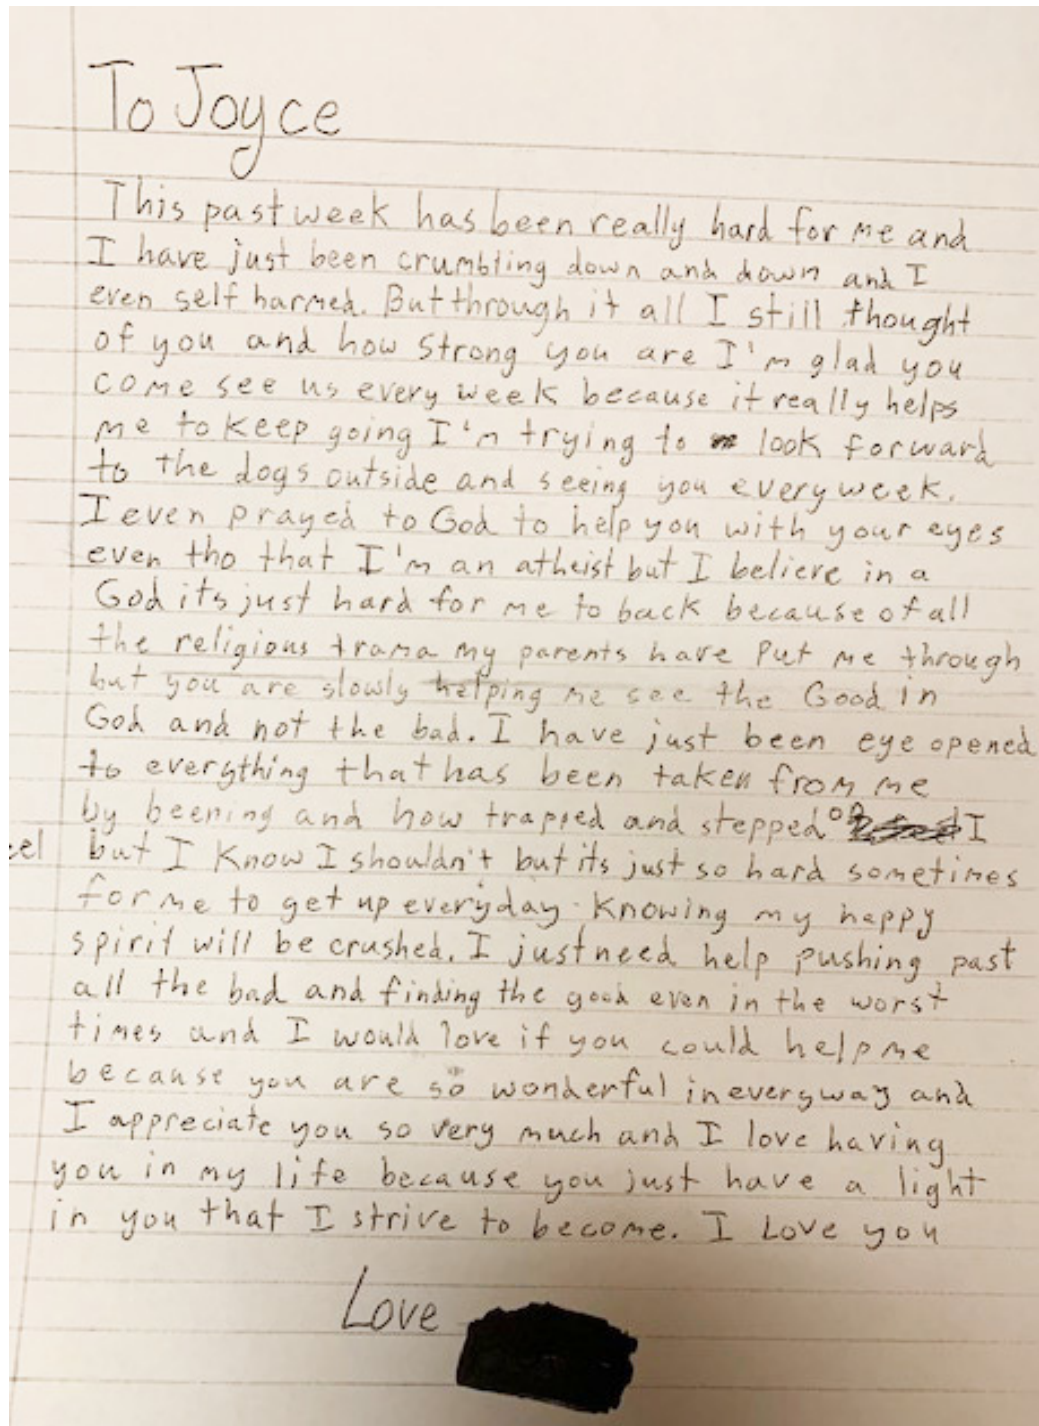 To Joyce
This past week has been really hard for me and
I have just been crumbling down and down and I
even self harmed. But through it all I still thought
of you and how strong you are I'm glad you
come see us every week because it really helps
me to keep going I'm trying to look forward
to the dogs outside and seeing you every week.
I even prayed to God to help you with your eyes
even tho that I'm an atheist but I believe in a
God its just hard for me to back because of all
the religious trama my parents have put me through
but you are slowly helping me see the Good in
God and not the bad. I have just been eye opened
to everything that has been taken from me
by beening and how trapped and stepped on I
eel but I know I shouldn't but its just so hard sometimes
for me to get up everyday knowing my happy
spirit will be crushed. I just need help pushing past
all the bad and finding the good even in the worst
times and I would love if you could help me
because you are so wonderful in every way and
I appreciate you so very much and I love having
you in my life because you just have a light
in you that I strive to become. I Love you
Love